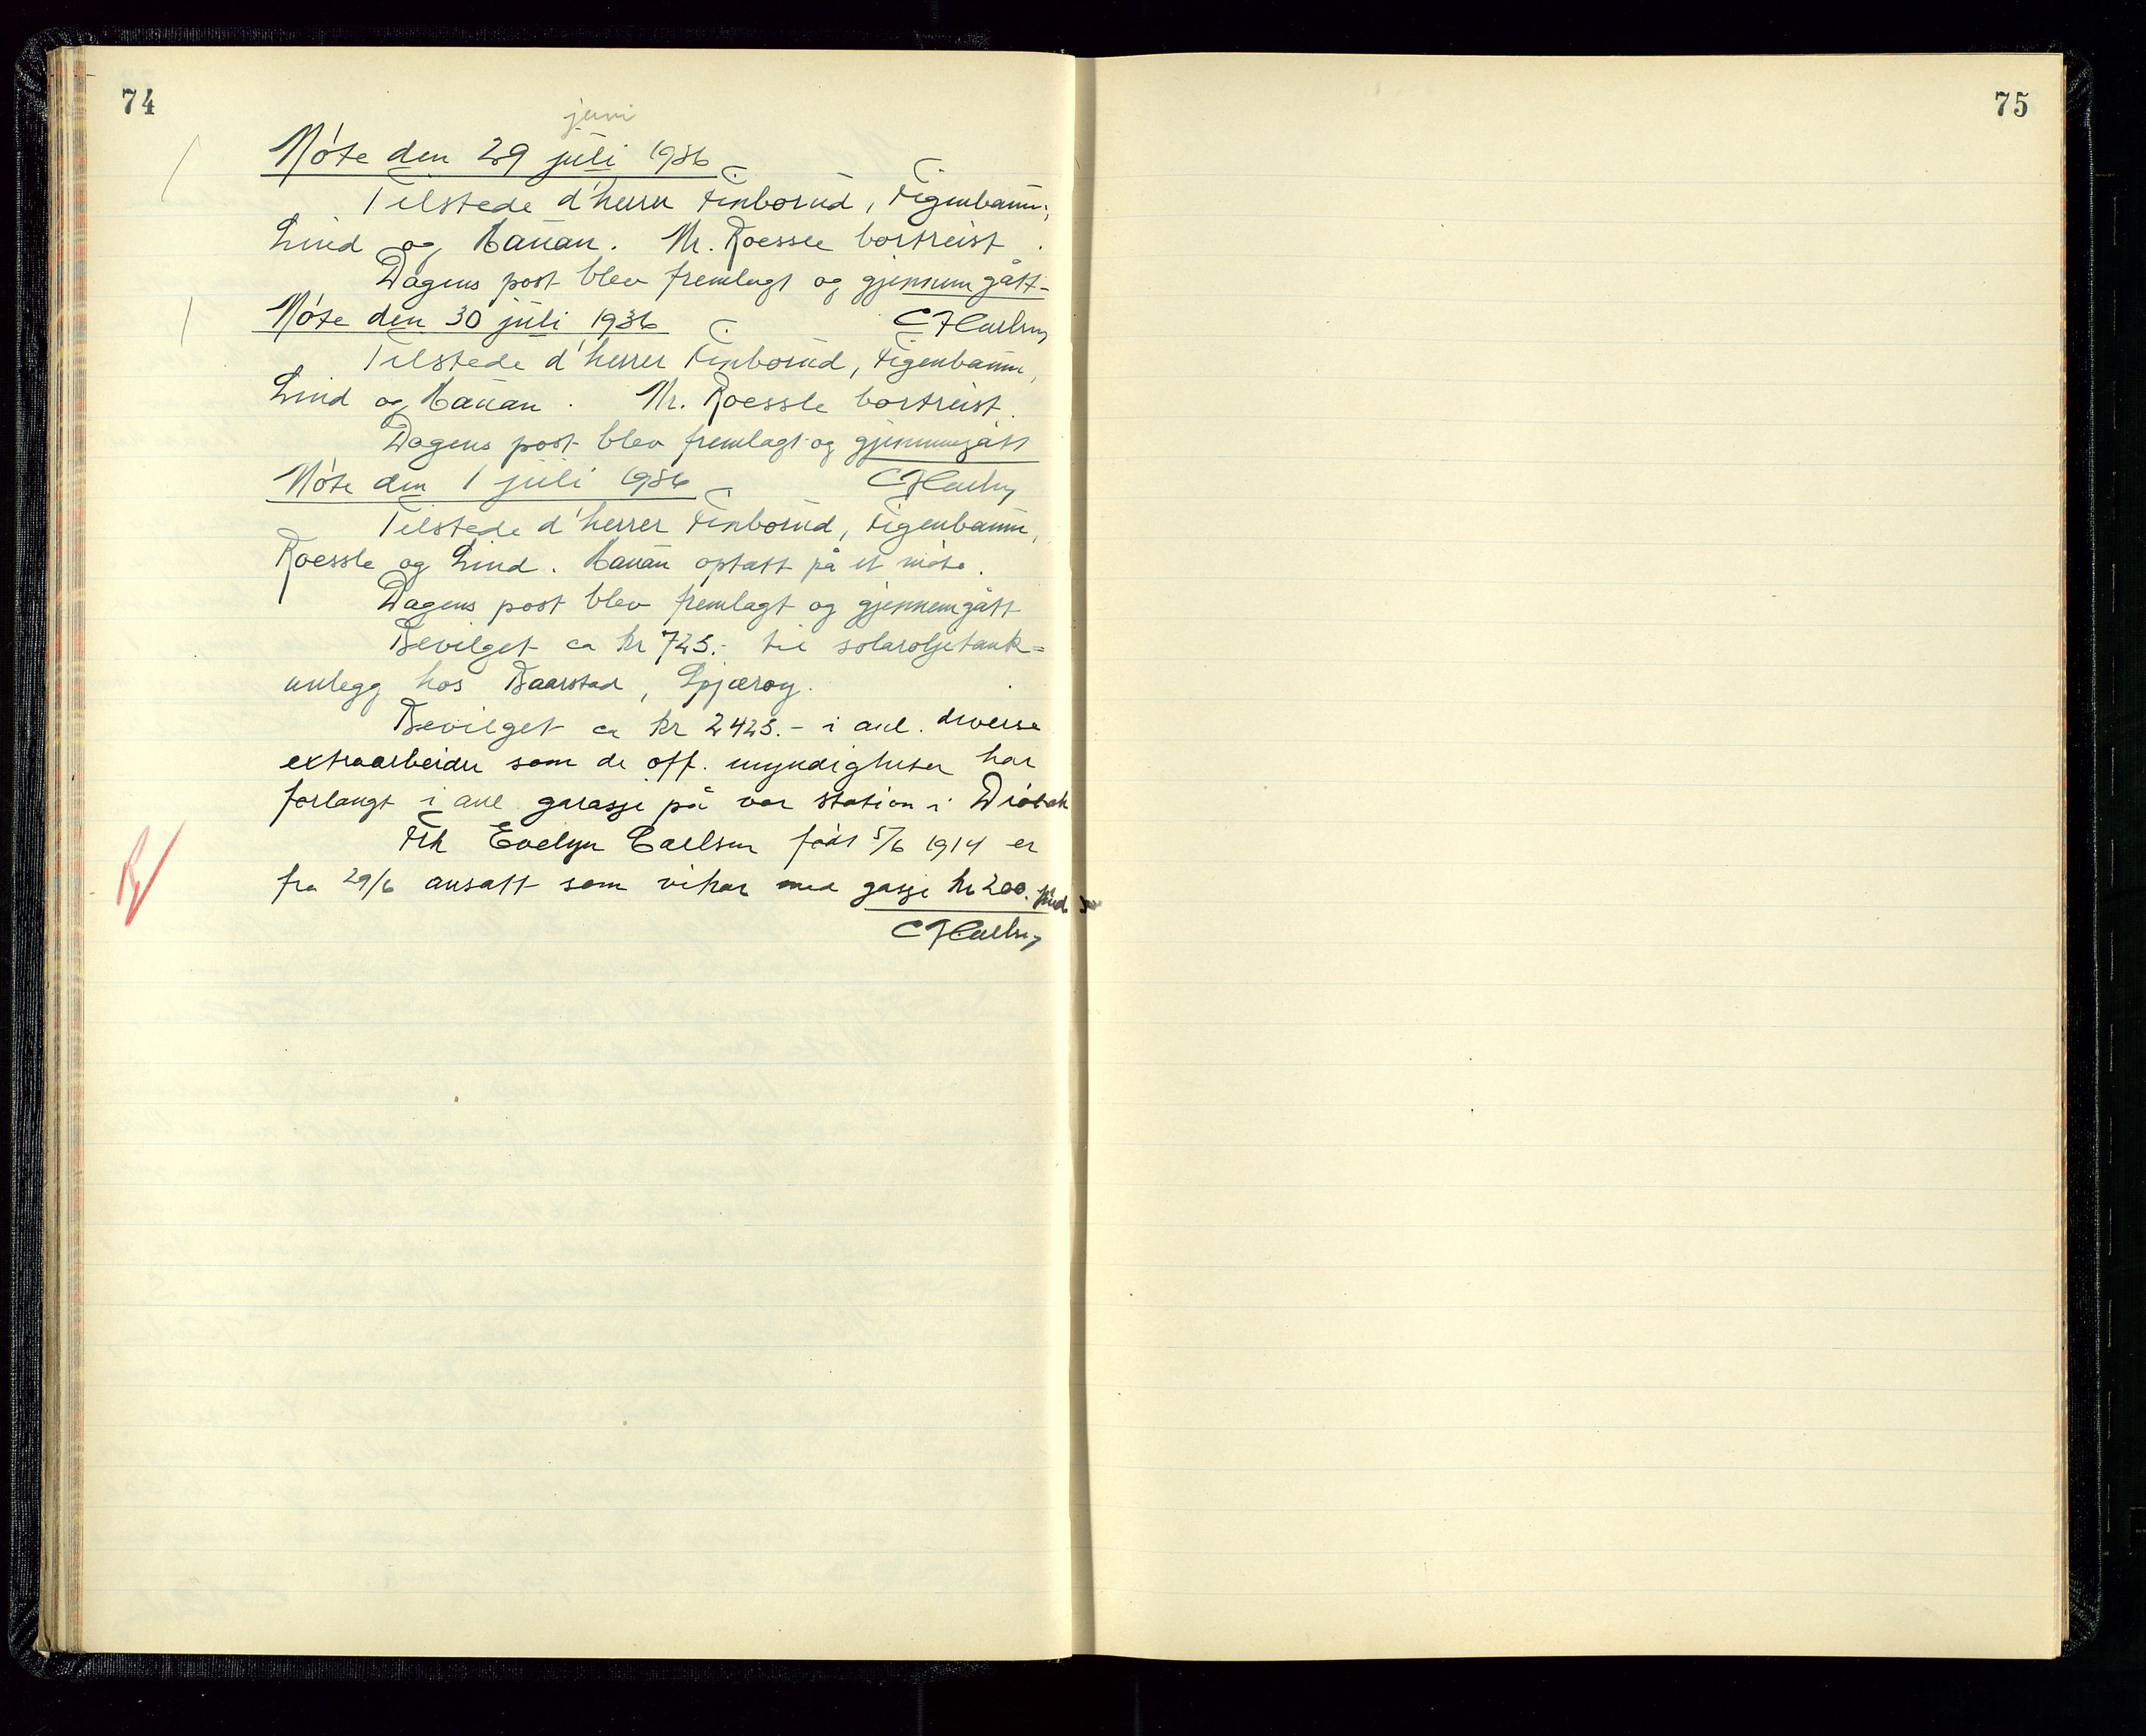 74
juni
Møte den 29 juli 1936
Tilstede d'herrer Finborud, Figenbaum,
Lind og Hauan. Mr. Roessle bortreist.
Dagens post blev fremlagt og gjennemgått-
Møte den 30 juli 1936
Tilstede d'herrer Finborud, Figenbaum,
Lind og Hauan. Mr. Roessle bortreist.
Dagens post blev fremlagt og gjennemgått
Møte den 1 juli 1936
Tilstede d'herrer Finborud, Figenbaum,
Roessle og Lind. Hauan optatt på et møte.
Dagens post blev fremlagt og gjennemgått
Bevilget ca kr 725.- til solaroljetank=
anlegg hos Baarstad, Spjærøy.
Bevilget ca kr 2425.- i anl. diverse
extraarbeider som de off. myndigheter har
forlangt i anl garasje på vor station i Drøbak
Frk Evelyn Carlsen født 5/6 1914 er
fra 29/6 ansatt som vikar med gasje kr 200.
75